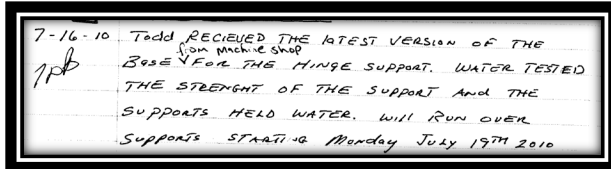 7-16-10 Todd RECIEVED THE LATEST VERSION OF THE
from Machine shop
BASE FOR THE HINGE SUPPORT. WATER TESTED
THE STRENGHT OF THE SUPPORT AND THE
SUPPORTS HELD WATER. WILL RUN OVER
SUPPORTS STARTING Monday July 19TH 2010